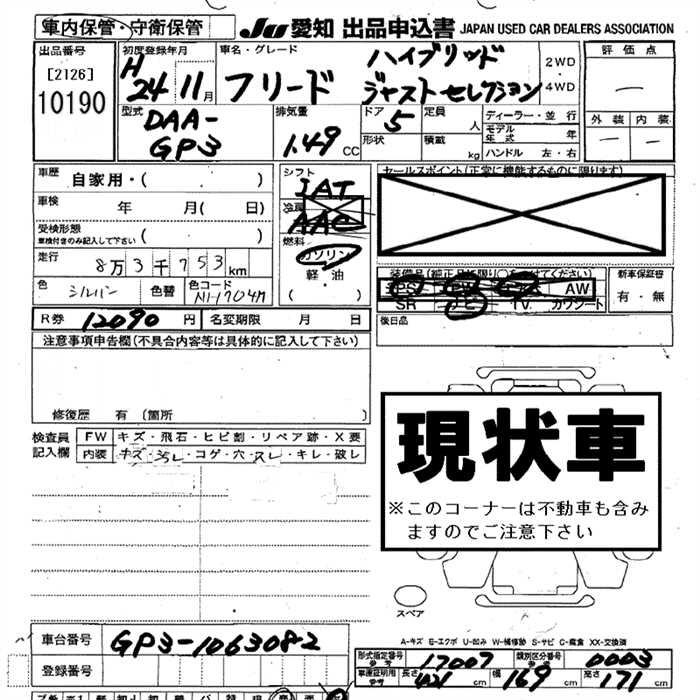 車内保管・守衛保管
JU 愛知 出品申込書 JAPAN USED CAR DEALERS ASSOCIATION
出品番号
[2126]
10190
初度登録年月
H
24 11月
車名・グレード
フリード
ハイブリッド
ジャストセレクション
2WD
4WD
評価点
外装 内装
型式
DAA-
GP3
排気量
1.49 CC
ドア
5
形状
定員
人
積載
kg
ディーラー・並行
モデル年式 年
ハンドル 左・右
車歴
自家用・( )
車検
年 月( 日)
受検形態
車検付きのみ記入して下さい ( )
走行
8万3千753km
色
シルバー
色替
色コード
NH704M
シフト
IAT
冷房
AAC
燃料
ガソリン
軽・油
( )
セールスポイント(正常に機能するものに限ります)
装備品(純正品に限り○をつけてください)
PS PW AW
SR ナビ TV カワシート
新車保証書
有・無
後日品
R券 12090 円
名変期限 月 日
注意事項申告欄(不具合内容等は具体的に記入して下さい)
修復歴 有 (箇所 )
検査員
記入欄
FW キズ・飛石・ヒビ割・リペア跡・X要
内装 キズ・汚レ・コゲ・穴・スレ・キレ・破レ
現状車
※このコーナーは不動車も含み
ますのでご注意下さい
スペア
A-キズ E-エクボ U-凹み W-補修跡 S-サビ C-腐食 XX-交換済
車台番号 GP3-1063082
登録番号
形式指定番号
参考
17007
類別区分番号
参考
0003
車庫証明用
参考
長さ 421 cm 幅 169 cm 高さ 171 cm